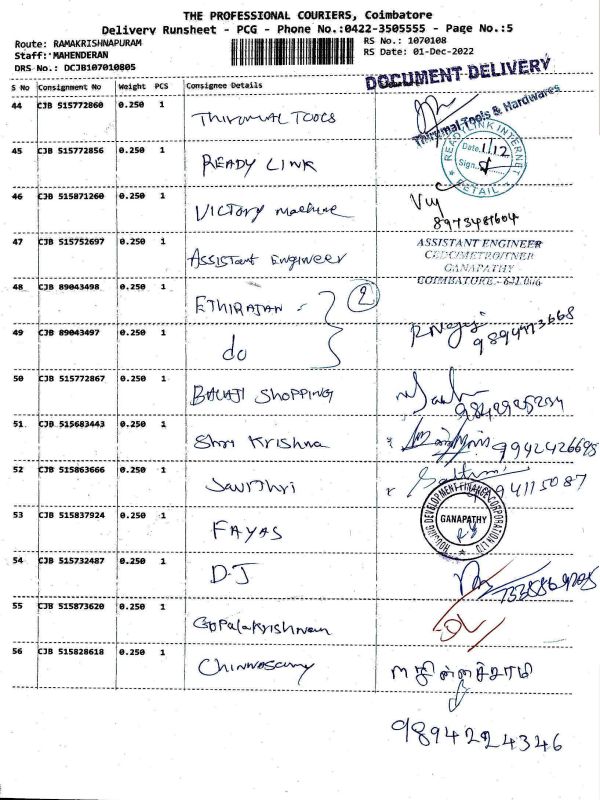 THE PROFESSIONAL COURIERS, Coimbatore
Delivery Runsheet - PCG - Phone No.:0422-3505555 - Page No.:5
Route: RAMAKRISHNAPURAM
RS No.: 1070108
Staff: MAHENDERAN
RS Date: 01-Dec-2022
DRS No.: DCJB107010805
DOCUMENT DELIVERY
S No Consignment No Weight PCS Consignee Details
44 CJB 515772860 0.250 1 THIRUMAL TOOLS
Thirumal Tools & Hardwares
45 CJB 515772856 0.250 1 READY LINK
READYLINK INTERNET
Date 1/12
Sign.
RETAIL
46 CJB 515871260 0.250 1 VICTORY machine
8973481604
47 CJB 515752697 0.250 1 Assistant Engineer
ASSISTANT ENGINEER
GANAPATHY
COIMBATORE - 641 006
48 CJB 89043498 0.250 1 ETHIRAJAN
2
49 CJB 89043497 0.250 1 do
9894773668
50 CJB 515772867 0.250 1 BALAJI SHOPPING
51 CJB 515683443 0.250 1 Shri Krishna
9942426695
52 CJB 515863666 0.250 1 Savithri
94115087
53 CJB 515837924 0.250 1 FAYAS
HOUSING DEVELOPMENT FINANCE CORPORATION LTD
GANAPATHY
54 CJB 515732487 0.250 1 D.J
55 CJB 515873620 0.250 1 Gopalakrishnan
56 CJB 515828618 0.250 1 Chinnasamy
சின்னச்சாமி
9894224346